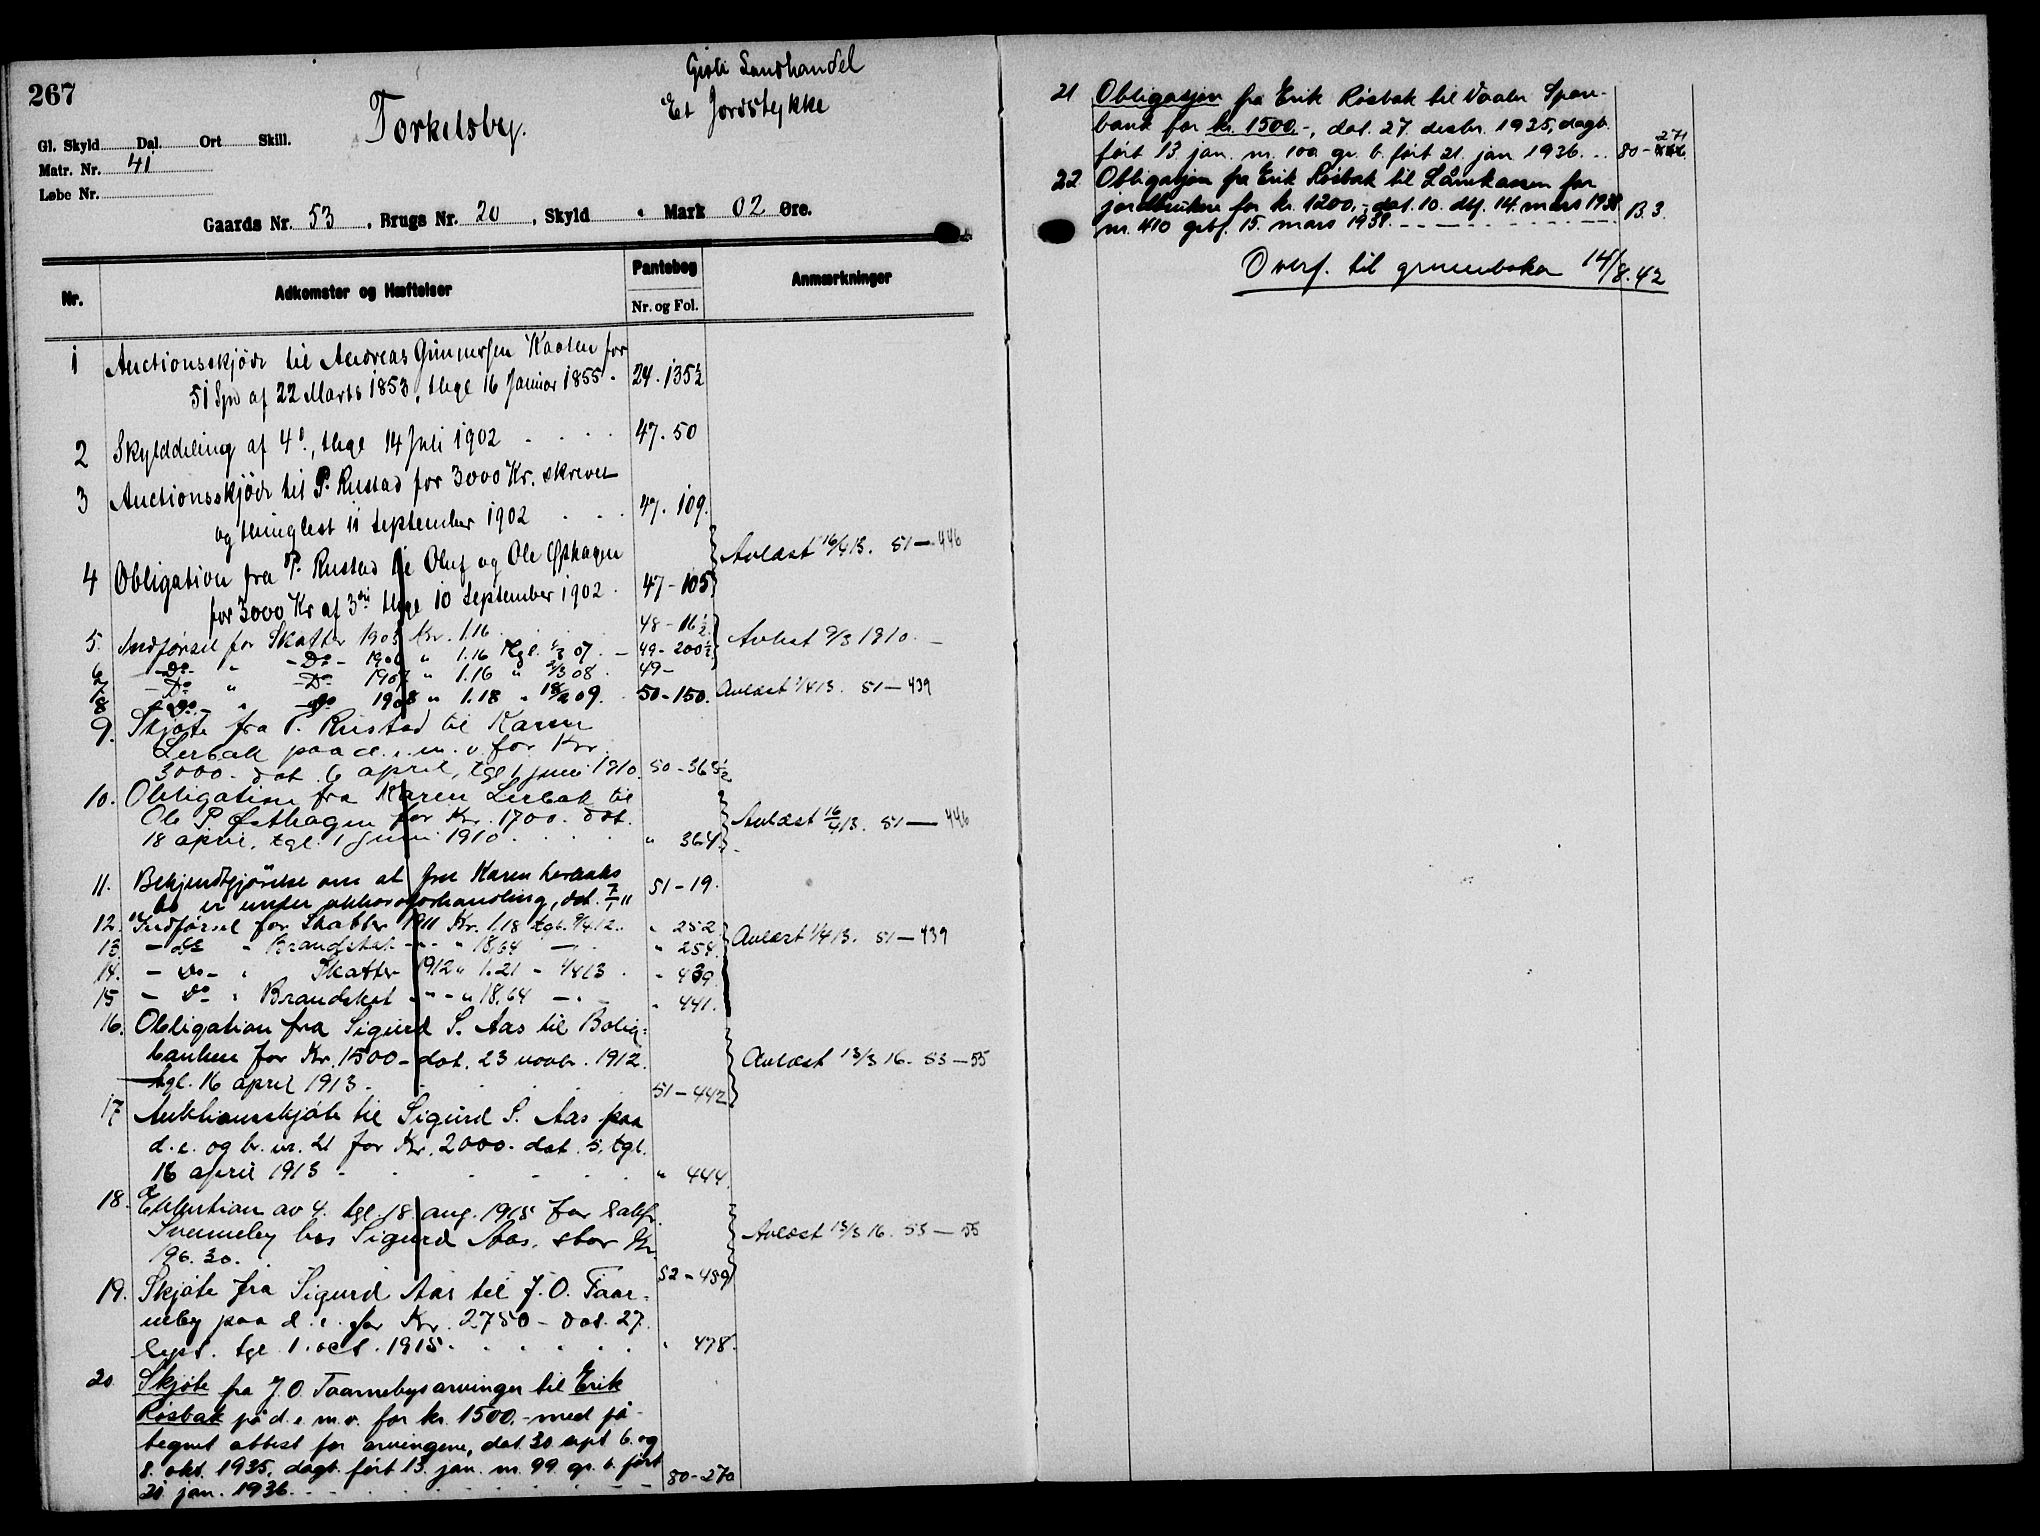 267
Gisti Landhandel
Et Jordstykke
Torkelsby.
Gl. Skyld Dal. Ort Skill.
Matr. Nr. 41
Løbe Nr.
Gaards Nr. 53, Brugs Nr. 20, Skyld " Mark 02 Øre.
Nr. Adkomster og Hæftelser Pantebog Nr. og Fol. Anmærkninger
1 Auctionsskjöde til Andreas Gunnersen Kaaten for
51 Spd af 22 Marts 1853, thgl 16 Januar 1855 - 24. 135½
2 Skylddeling af 4de, thgl 14 Juli 1902 . . . . 47. 50
3 Auctionsskjöde til P. Rustad for 3000 Kr. skrevet
og thinglest 11 September 1902 . . . 47. 109.
4 Obligation fra P. Rustad til Oluf og Ole Østhagen
for 3000 Kr af 3die thgl 10 September 1902. 47 - 105 Avlæst 16/4 13. 51 — 446
5. Indførsel for Skatter 1905 Kr. 1.16 48 - 16½
6 - Do - " - Do - 1906 " 1.16 tgl. 07. - 49 - 200½ Avlest 9/3 1910. -
7 - Do " - Do 1907 " 1.16 " 2/3 08. 49 -
8 - Do - " - Do 1908 " 1.18 " 18/2 09. 50 - 150. Avlæst 1/4 13. 51 — 439
9. Skjøte fra P. Rustad til Karen
Lerbak paa d. e. m. v. for Kr.
3000 - dat. 6 april, tgl. 1 juni 1910. 50 - 363½
10. Obligation fra Karen Lerbak til
Ole P. Østhagen for Kr. 1700. dat.
18 april, tgl. 1 juni 1910. . . . . " 364. Avlæst 16/4 13. 51 — 446
11. Bekjendtgjörelse om at fru Karen Lerbaks
bo er under akkordforhandling, dat. 7/1 11 51 - 19.
12. Indførsel for Skatter 1911 Kr. 1.18 tgl. 9/4 12. " 252
13. - do " Brandskat - " - " 18,64 — " - " 254. Avlæst 1/4 13. 51 — 439
14. - Do - " Skatter 1912 " 1.21 - 1/4 13 . " 439.
15 - Do - " Brandskat - " - " 18,64 — " - " 441.
16. Obligation fra Sigurd S. Aas til Bolig-
banken for Kr. 1500 - dat. 23 novbr. 1912.
tgl. 16 april 1913 - . . . . 51 - 442 Avlæst 13/3 16. 53 — 55
17 Auktionsskjøte til Sigurd S. Aas paa
d. e. og br. nr. 21 for Kr. 2000 - dat. 5. tgl.
16 april 1913 - . . . . " 444.
18. Exekution av 4. tgl. 18. aug. 1915 for
Svenneby hos Sigurd Aas, stor Kr.
196.30. . . 52 - 459 Avlæst 13/3 16. 53 — 55
19. Skjøte fra Sigurd Aas til J. O. Taar-
neby paa d. e. for Kr. 2750 - dat. 27.
sept. tgl. 1. oct. 1915. . . . . . " 478.
20. Skjøte fra J. O. Taarnebys arvinger til Erik
Rösbak på d. e. m. v. for kr. 1500.- med på-
tegnet attest for arvingene, dat. 30 sept 6. og
8. okt. 1935, dagb. fört 13. jan. nr. 99 gr. b. fört
21. jan. 1936. - . . . . - - 80 - 270
21 Obligasjon fra Erik Rösbak til Vaaler Spare-
bank for kr. 1500.-, dat. 27. desbr. 1935, dagb.
fört 13. jan. nr. 100 gr. b. fört 21. jan 1936. . . 80 - 271
22 Obligasjon fra Erik Rösbak til Lånekassen for
jordbrukere for kr. 1200.-, dat. 10. dbf. 14. mars 1938
nr. 410 grbf. 15. mars 1938. - - - B. 3.
Overf. til grunnboken 14/8. 42